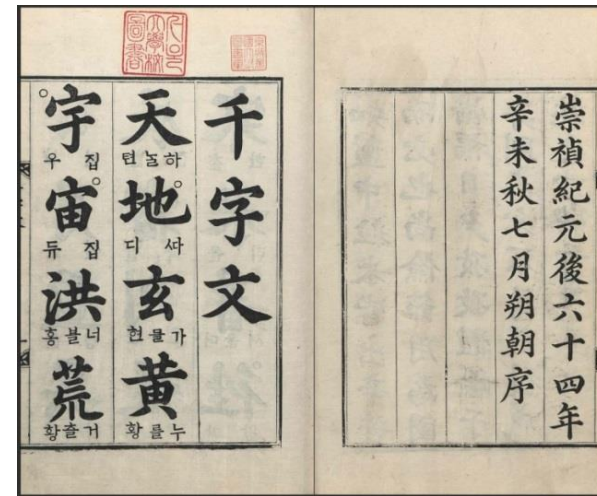 崇禎紀元後六十四年
辛未秋七月朔朝序
千字文
天 하ᄂᆞᆯ텬 地 ᄯᅡ디 玄 가믈현 黃 누를황
宇 집우 宙 집듀 洪 너블홍 荒 거츨황